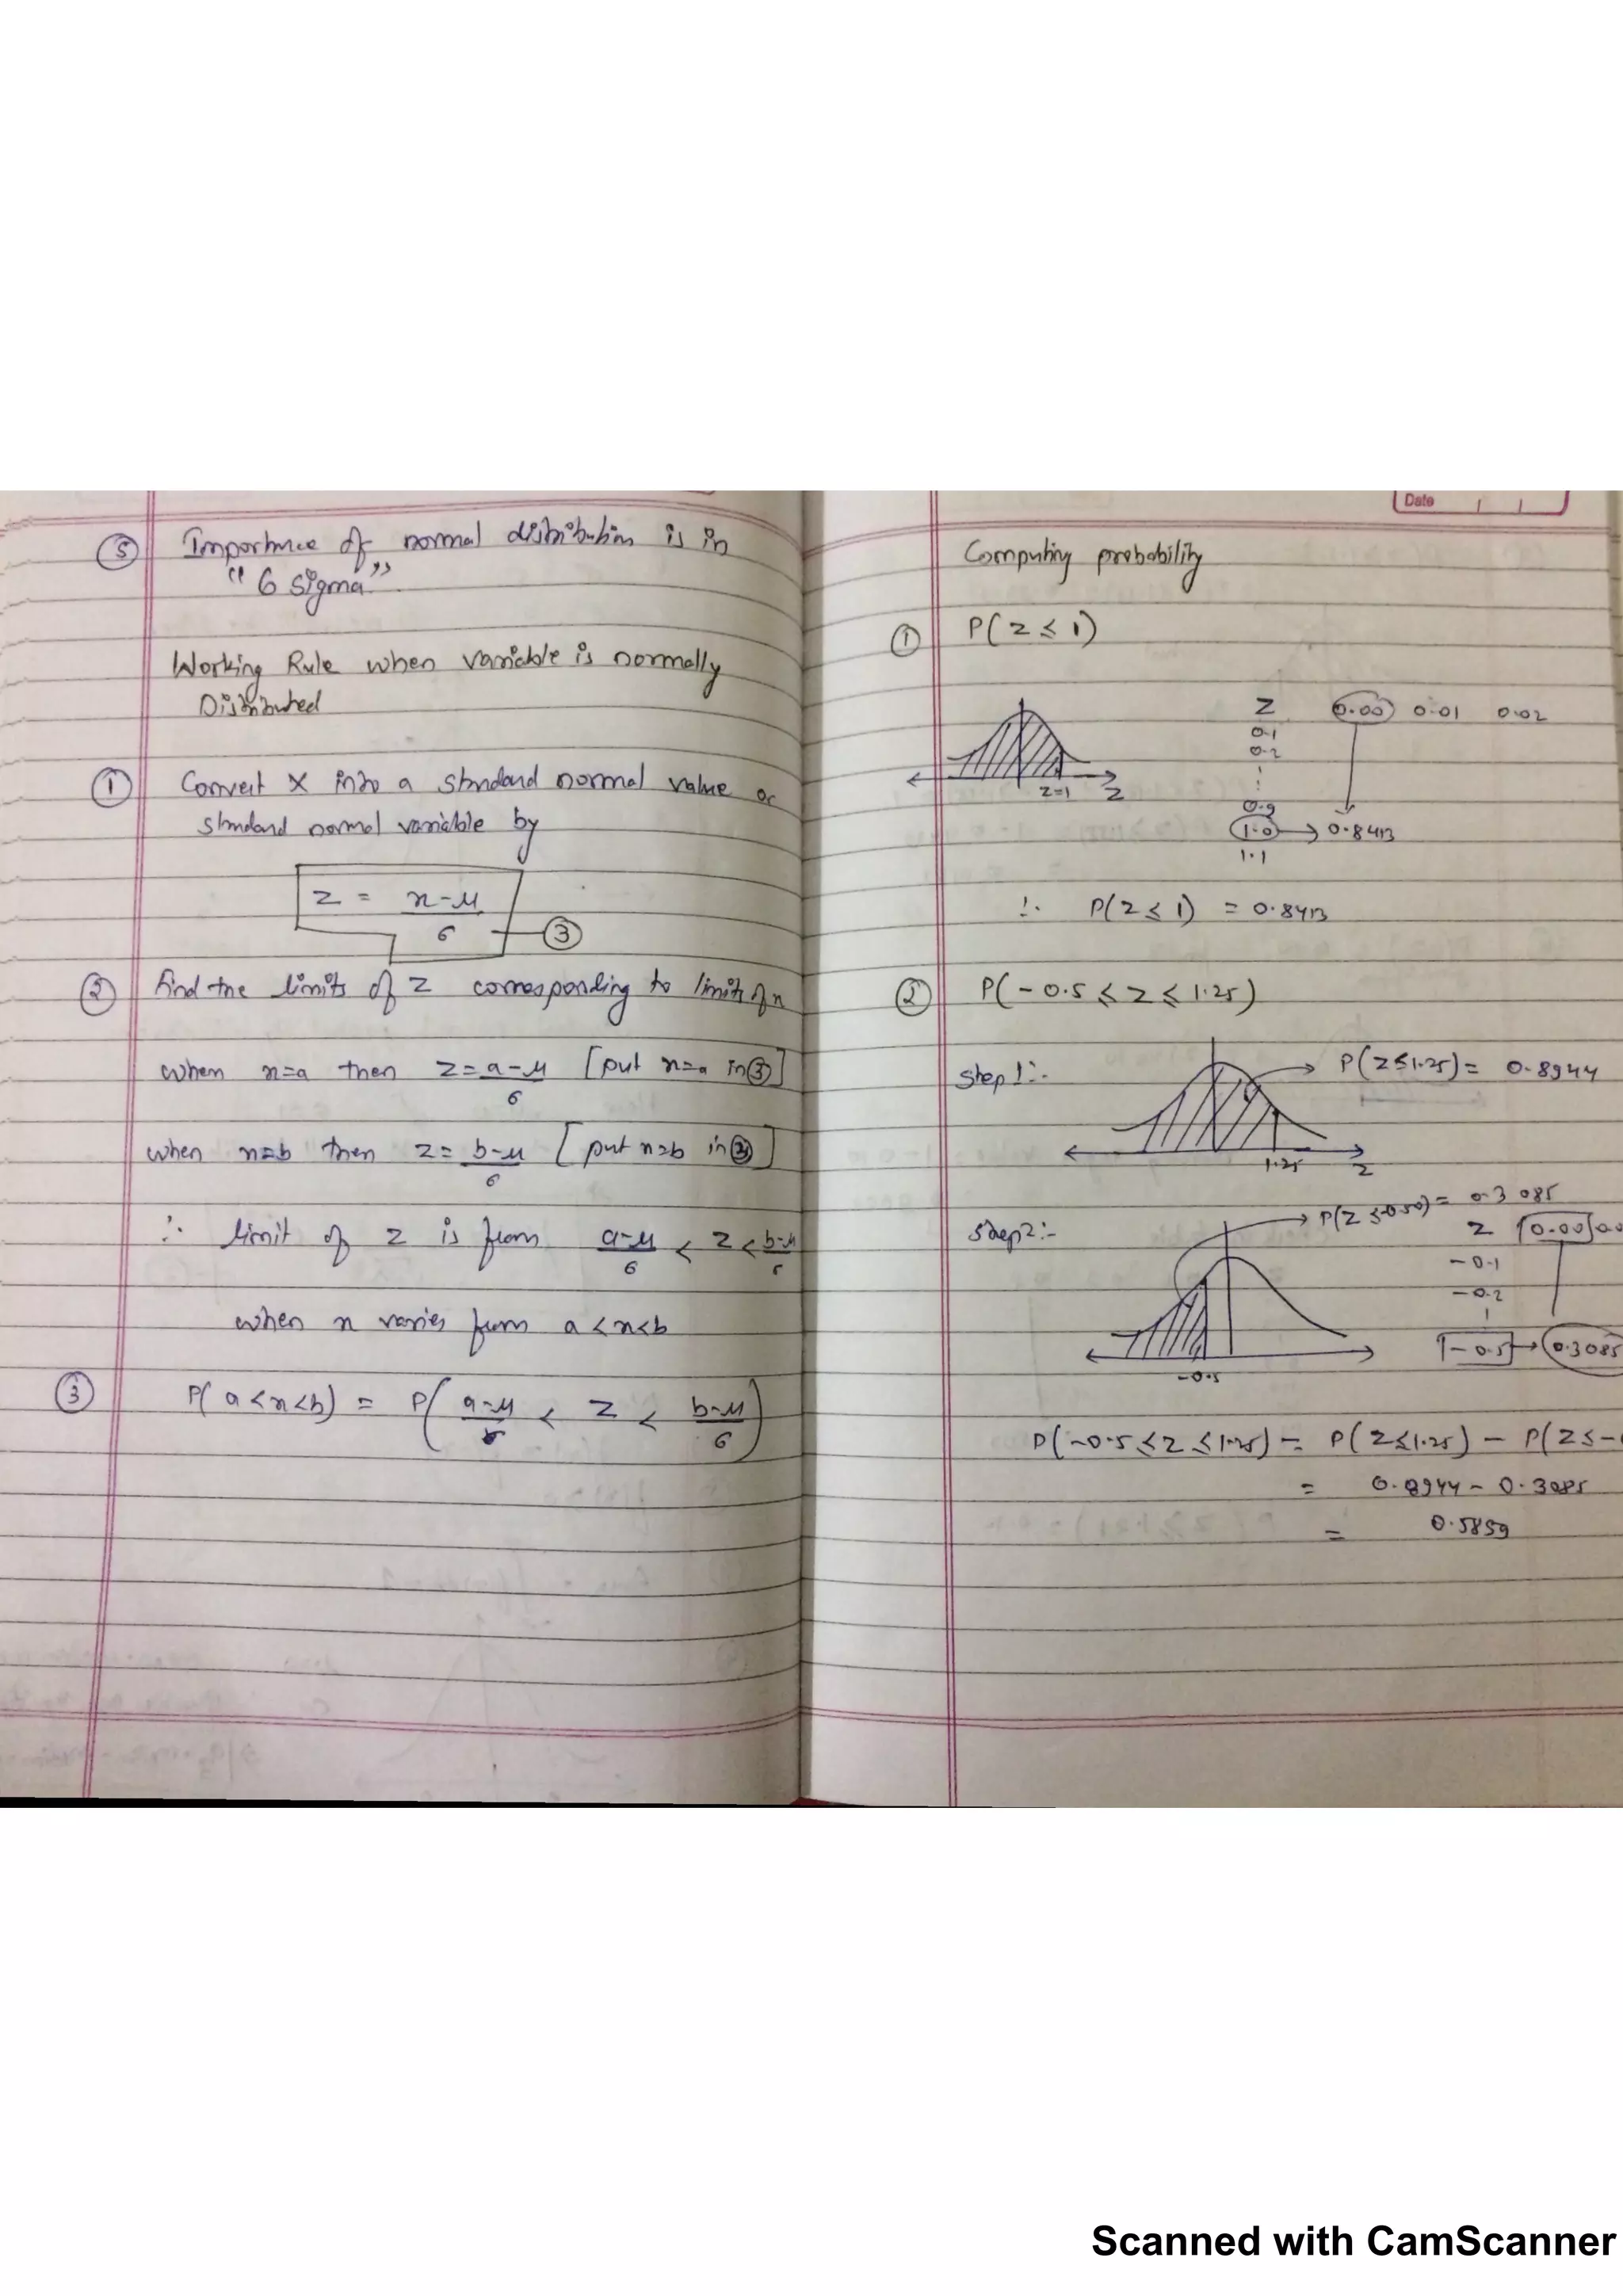 ⑤ Importance of normal distribution is in
"6 sigma"
Working Rule when variable is normally
Distributed
① Convert X into a standard normal value or
standard normal variable by
z = x-μ / σ — ③
② find the limits of z corresponding to limits of x
when x=a then z = a-μ / σ [put x=a in ③]
when x=b then z = b-μ / σ [put x=b in ③]
∴ limit of z is from a-μ / σ < z < b-μ / σ
when x varies from a < x < b
③ P(a < x < b) = P( a-μ / σ < z < b-μ / σ )
Date / /
Computing probability
① P(z ≤ 1)
z 0.00 0.01 0.02
0.1
0.2
⋮
0.9
1.0 → 0.8413
1.1
z=1 z
∴ P(z ≤ 1) = 0.8413
② P(-0.5 ≤ z ≤ 1.25)
Step 1:- → P(z ≤ 1.25) = 0.8944
1.25 z
Step 2:- → P(z ≤ -0.50) = 0.3085
z 0.00 0.0
-0.1
-0.2
-0.5 → 0.3085
-0.5
P(-0.5 ≤ z ≤ 1.25) = P(z ≤ 1.25) - P(z ≤ -
= 0.8944 - 0.3085
= 0.5859
Scanned with CamScanner